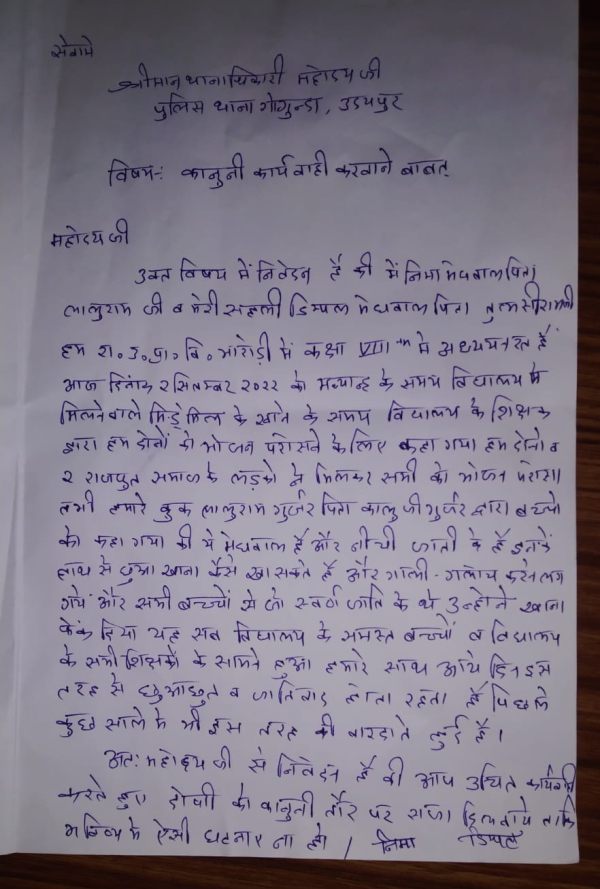 सेवामे
श्रीमान थानाधिकारी महोदय जी
पुलिस थाना गोगुन्डा, उदयपुर
विषय:- कानुनी कार्यवाही करवाने बाबत्
महोदय जी
उक्त विषय में निवेदन है की में निमा मेघवाल पिता
लालुराम जी व मेरी सहली डिम्पल मेघवाल पिता तुलसीराम जी
हम रा. उ. प्रा. वि. भारोड़ी में कक्षा VIII th मे अध्ययनरत है
आज दिनांक 2 सितम्बर 2022 को मध्यान्ह के समय विद्यालय में
मिलने वाले मिड्डे मिल के खाने के समय विद्यालय के शिक्षक
द्वारा हम दोनों को भोजन परोसने के लिए कहा गया हम दोनो व
2 राजपुत समाज के लड़को ने मिलकर सभी को भोजन परोसा।
तभी हमारे कुक लालुराम गुर्जर पिता कालु जी गुर्जर द्वारा बच्चो
को कहा गया की ये मेघवाल है और नीची जाती के है इनके
हाथ से छुआ खाना कैसे खा सकते है और गाली-गलोच करने लग
गये और सभी बच्चों से जो स्वर्ण जाति के थे उन्होने खाना
फेंक दिया यह सब विद्यालय के समस्त बच्चों व विद्यालय
के सभी शिक्षको के सामने हुआ हमारे साथ आये दिन इस
तरह से छुआछुत व जातिवाद होता रहता है पिछले
कुछ सालो मे भी इस तरह की वारदाते हुई है।
अतः महोदय जी से निवेदन है की आप उचित कार्यवाही
करते हुए दोषी को कानुनी तौर पर सजा दिलवाये ताकि
भविष्य मे ऐसी घटनाए ना हो। निमा डिम्पल